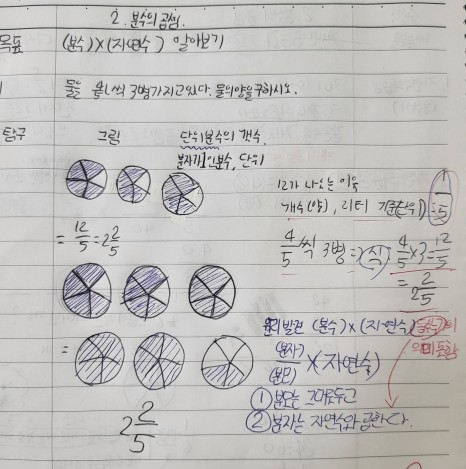 2. 분수의 곱셈.
목표
(분수)×(자연수) 알아보기
물을 씩 3명가지고있다. 물의양을구하시오.
탐구
그림
단위분수의 갯수.
분자가1인분수, 단위
12가 나오는 이유
개수(양), 리터 기준(단위) 1/5
= 12/5 = 2 2/5
4/5 씩 3병 = (식) 4/5×3=12/5
= 2 2/5
=
원리발견 (분수)×(자연수)
(분자)/(분모) ×(자연수)
① 분모는 그대로두고
② 분자는 자연수와 곱한다.
2 2/5